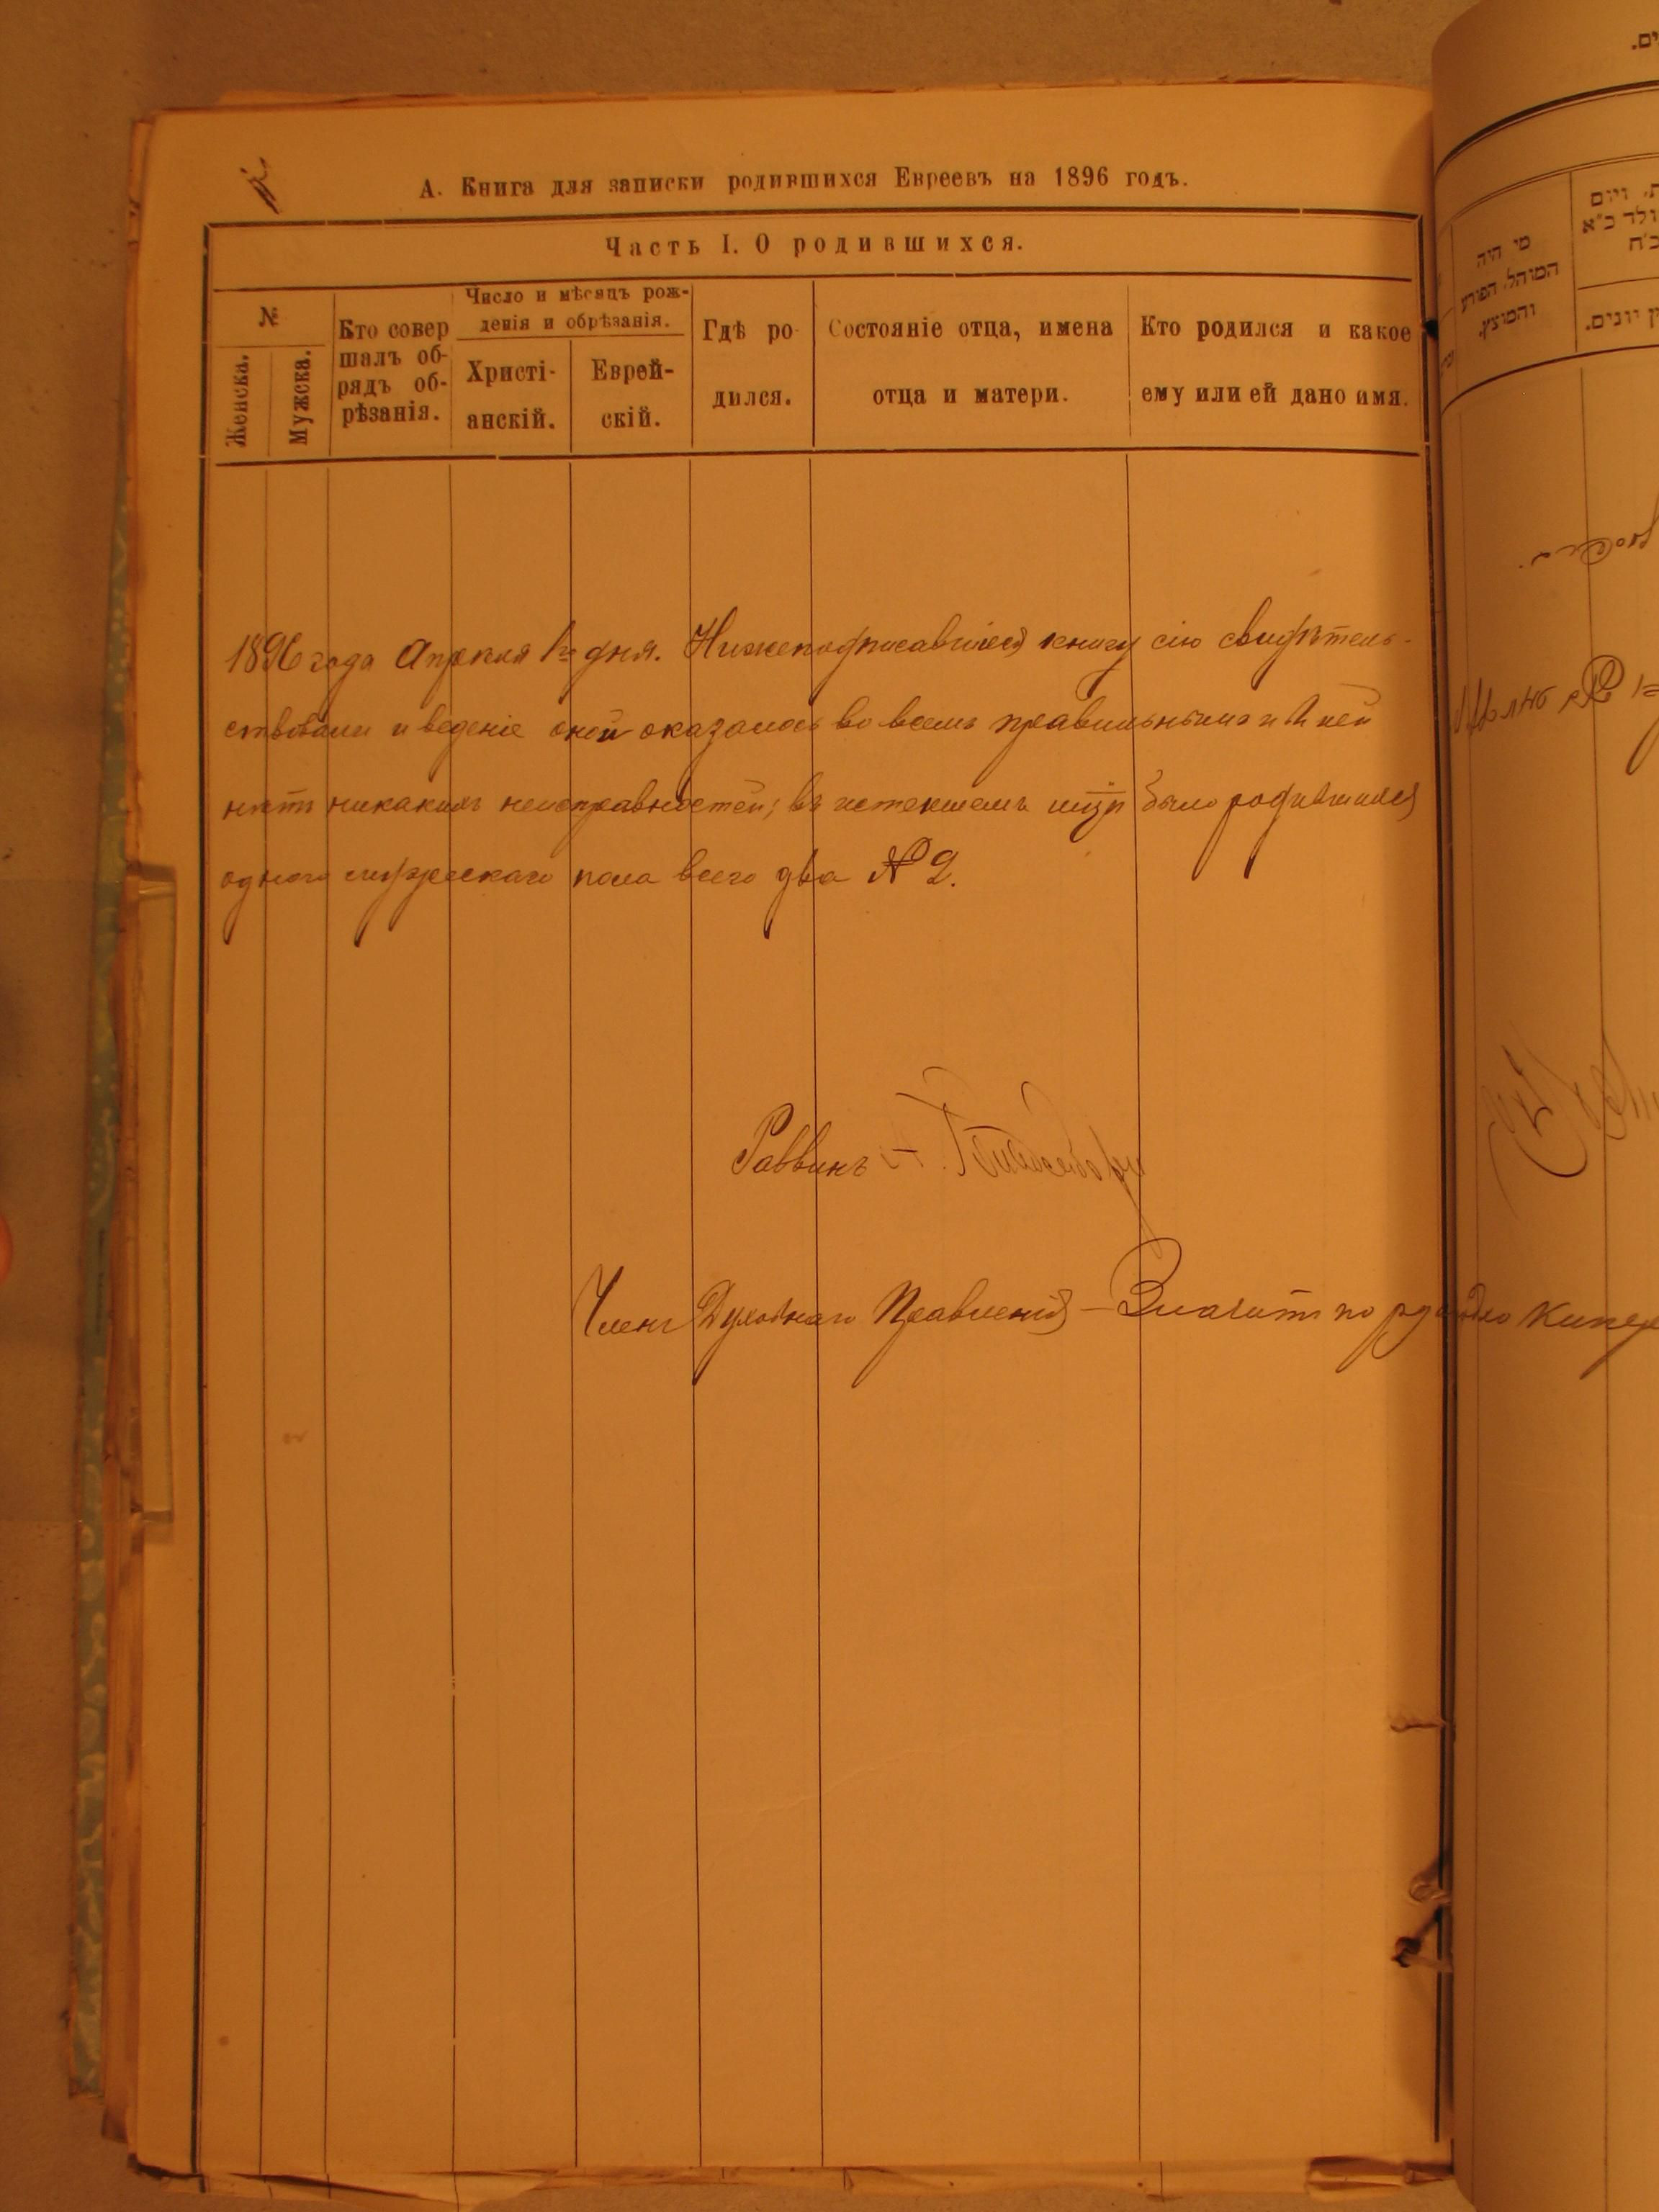 А. Книга для записки родившихся Евреевъ на 1896 годъ.
Часть I. О родившихся.
№
Женска.
Мужска.
Кто совер
шалъ об-
рядъ об-
рѣзанія.
Число и мѣсяцъ рож-
денія и обрѣзанія.
Христі-
анскій.
Еврей-
скій.
Гдѣ ро-
дился.
Состояніе отца, имена
отца и матери.
Кто родился и какое
ему или ей дано имя.
1896 года Апреля 1го дня. Нижеподписавшіеся книгу сію свидѣтель-
ствовали и веденіе оной оказалось во всемъ правильнымъ и въ ней
нѣтъ никакихъ неисправностей; въ истекшемъ мцѣ было родившихся
одного мужескаго пола всего два № 2.
Раввинъ А.
Членъ Духовнаго Правленія –
מי היה
המוהל, הפורע
והמוצץ.